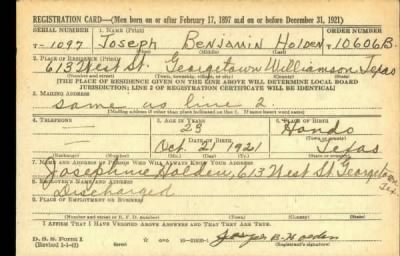 REGISTRATION CARD—(Men born on or after February 17, 1897 and on or before December 31, 1921)
SERIAL NUMBER 1. NAME (Print) ORDER NUMBER
T-1097 Joseph Benjamin Holden T-10606B
(First) (Middle) (Last)
2. PLACE OF RESIDENCE (Print)
613 West St. Georgetown Williamson Texas
(Number and street) (Town, township, village, or city) (County) (State)
[THE PLACE OF RESIDENCE GIVEN ON THE LINE ABOVE WILL DETERMINE LOCAL BOARD
JURISDICTION; LINE 2 OF REGISTRATION CERTIFICATE WILL BE IDENTICAL]
3. MAILING ADDRESS
same as line 2.
[Mailing address if other than place indicated on line 2. If same insert word same]
4. TELEPHONE 5. AGE IN YEARS 6. PLACE OF BIRTH
— 23 Hondo
DATE OF BIRTH (Town or county)
— Oct. 21 1921 Texas
(Exchange) (Number) (Mo.) (Day) (Yr.) (State or country)
7. NAME AND ADDRESS OF PERSON WHO WILL ALWAYS KNOW YOUR ADDRESS
Josephine Holden, 613 West St. Georgetown
Tex
8. EMPLOYER'S NAME AND ADDRESS
Discharged
9. PLACE OF EMPLOYMENT OR BUSINESS
(Number and street or R. F. D. number) (Town) (County) (State)
I AFFIRM THAT I HAVE VERIFIED ABOVE ANSWERS AND THAT THEY ARE TRUE.
D. S. S. Form 1
(Revised 1-1-42) (over)
Joseph B. Holden
(Registrant's signature)